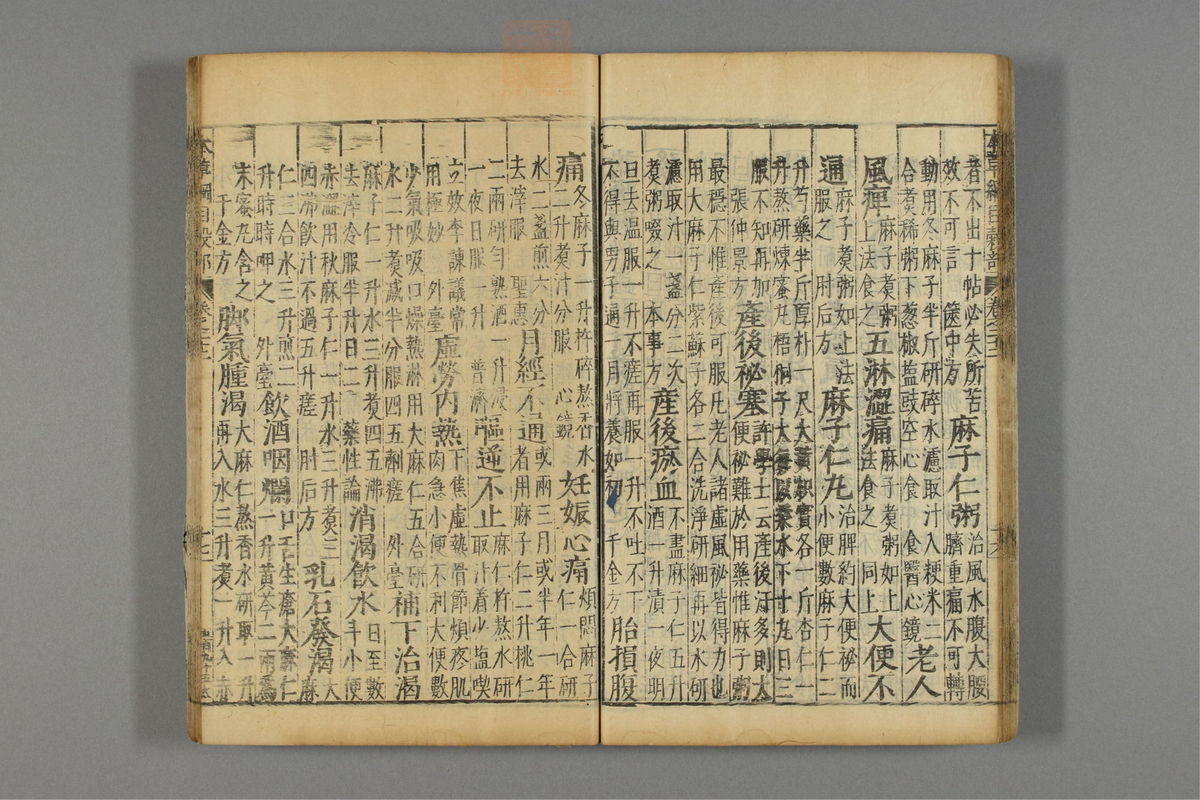 本草綱目穀部 卷二十二 十六
者不出十帖必失所苦
效不可言 篋中方
麻子仁粥
治風水腹大腰
臍重痛不可轉
動用冬麻子半斤研碎水濾取汁入粳米二
合煮稀粥下葱椒鹽豉空心食 食醫心鏡
老人
風痺
麻子煮粥
上法食之
五淋澀痛
麻子煮粥如上
法食之 同上
大便不
通
麻子煮粥如上法
服之 肘后方
麻子仁丸
治脾約大便祕而
小便數麻子仁二
升芍藥半斤厚朴一尺大黃枳實各一斤杏仁一
升熬研煉蜜丸梧桐子大每以漿水下十丸日三
服不知再加
張仲景方
產後祕塞
許學士云產後汗多則大
便祕難於用藥惟麻子粥
最穩不惟產後可服凡老人諸虛風祕皆得力也
用大麻子仁紫蘇子各二合洗淨研細再以水研
濾取汁一盞分二次
煮粥啜之 本事方
產後瘀血
不盡麻子仁五升
酒一升漬一夜明
旦去滓溫服一升不瘥再服一升不吐不下
不得與男子通一月將養如初 千金方
胎損腹
痛
冬麻子一升杵碎熬香水
二升煮汁分服 心鏡
妊娠心痛
煩悶麻子
仁一合研
水二盞煎六分
去滓服 聖惠
月經不通
或兩三月或半年一年
者用麻子仁二升桃仁
二兩研勻熟酒一升浸
一夜日服一升 普濟
嘔逆不止
麻仁杵熬水研
取汁着少鹽喫
立效李諫議常
用極妙 外臺
虛勞內熱
下焦虛熱骨節煩疼肌
肉急小便不利大便數
少氣吸吸口燥熱淋用大麻仁五合研
水二升煮減半分服四五劑瘥 外臺
補下治渴
麻子仁一升水三升煮四五沸
去滓冷服半升日二 藥性論
消渴飲水
日至數
斗小便
赤澀用秋麻子仁一升水三升煮三
四沸飲汁不過五升瘥 肘后方
乳石發渴
大
麻
仁三合水三升煎二
升時時呷之 外臺
飲酒咽爛
口舌生瘡大麻仁
一升黃芩二兩爲
末蜜丸含之
千金方
腳氣腫渴
大麻仁熬香水研取一升
再入水三升煮一升入赤
本草綱目穀部 卷二十二 十七